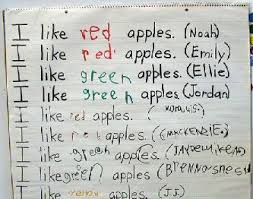 I like red apples. (Noah)
I like red apples. (Emily)
I like green apples. (Ellie)
I like green apples (Jordan)
I like red apples.
I like red apples. (MACKENZIE.)
I like green apples.
I like green apples.
I like apples. (J.J.)